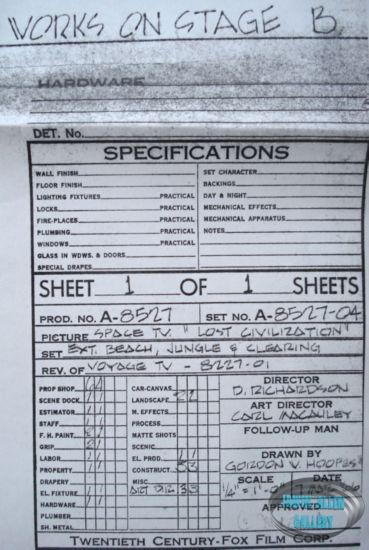 WORKS ON STAGE B.
HARDWARE
DET. No.
SPECIFICATIONS
WALL FINISH
FLOOR FINISH
LIGHTING FIXTURES PRACTICAL
LOCKS PRACTICAL
FIRE-PLACES PRACTICAL
PLUMBING PRACTICAL
WINDOWS PRACTICAL
GLASS IN WDWS. & DOORS
SPECIAL DRAPES
SET CHARACTER
BACKINGS
DAY & NIGHT
MECHANICAL EFFECTS
MECHANICAL APPARATUS
NOTES
SHEET 1 OF 1 SHEETS
PROD. NO. A-8527 SET NO. A-8527-04
PICTURE SPACE TV. "LOST CIVILIZATION"
SET EXT. BEACH, JUNGLE & CLEARING
REV. OF VOYAGE TV - 8227-01
PROP SHOP
SCENE DOCK
ESTIMATOR
STAFF
F. H. PAINT
GRIP
LABOR
PROPERTY
DRAPERY
EL. FIXTURE
HARDWARE
PLUMBER
SH. METAL
CAR-CANVAS
LANDSCAPE
M. EFFECTS
PROCESS
MATTE SHOTS
SCENIC
EL. PROD.
CONSTRUCT.
MISC.
ART DIR. 33
DIRECTOR
D. RICHARDSON
ART DIRECTOR
CARL MACAULEY
FOLLOW-UP MAN
DRAWN BY
GORDON V. HOOPES
SCALE DATE
1/4" = 1'-0"
APPROVED
GALLERY
TWENTIETH CENTURY-FOX FILM CORP.